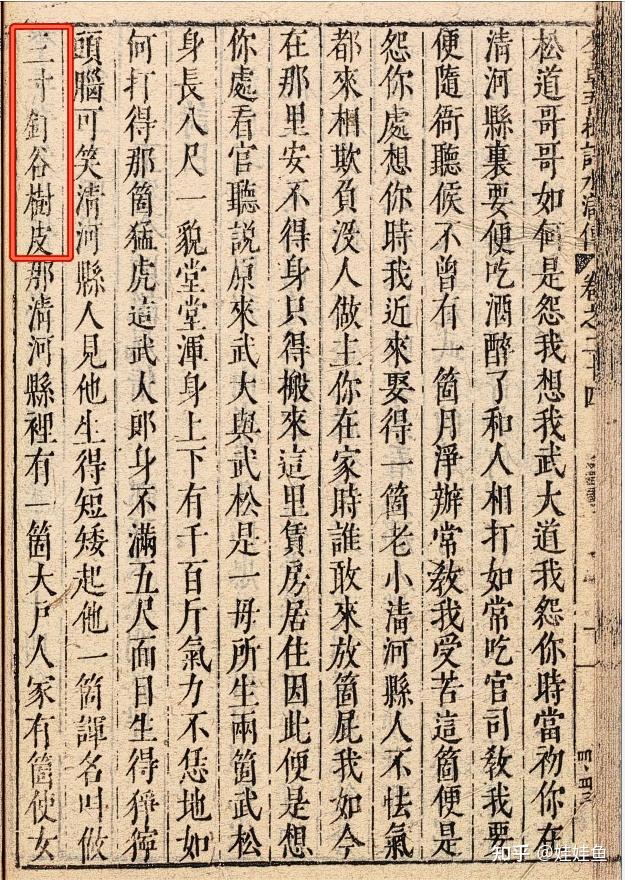 卷之二十四
松道哥哥如何是怨我想我武大道我怨你時當初你在
清河縣裏要便吃酒醉了和人相打如常吃官司教我要
便隨衙聽候不曾有一箇月淨辦常教我受苦這箇便是
怨你處想你時我近來娶得一箇老小清河縣人不怯氣
都來相欺負沒人做主你在家時誰敢來放箇屁我如今
在那里安不得身只得搬來這里賃房居住因此便是想
你處看官聽說原來武大與武松是一母所生兩箇武松
身長八尺一貌堂堂渾身上下有千百斤氣力不恁地如
何打得那箇猛虎這武大郎身不滿五尺面目生得猙獰
頭腦可笑清河縣人見他生得短矮起他一箇諢名叫做
三寸釘谷樹皮那清河縣裡有一箇大戶人家有箇使女
知乎 @娃娃鱼